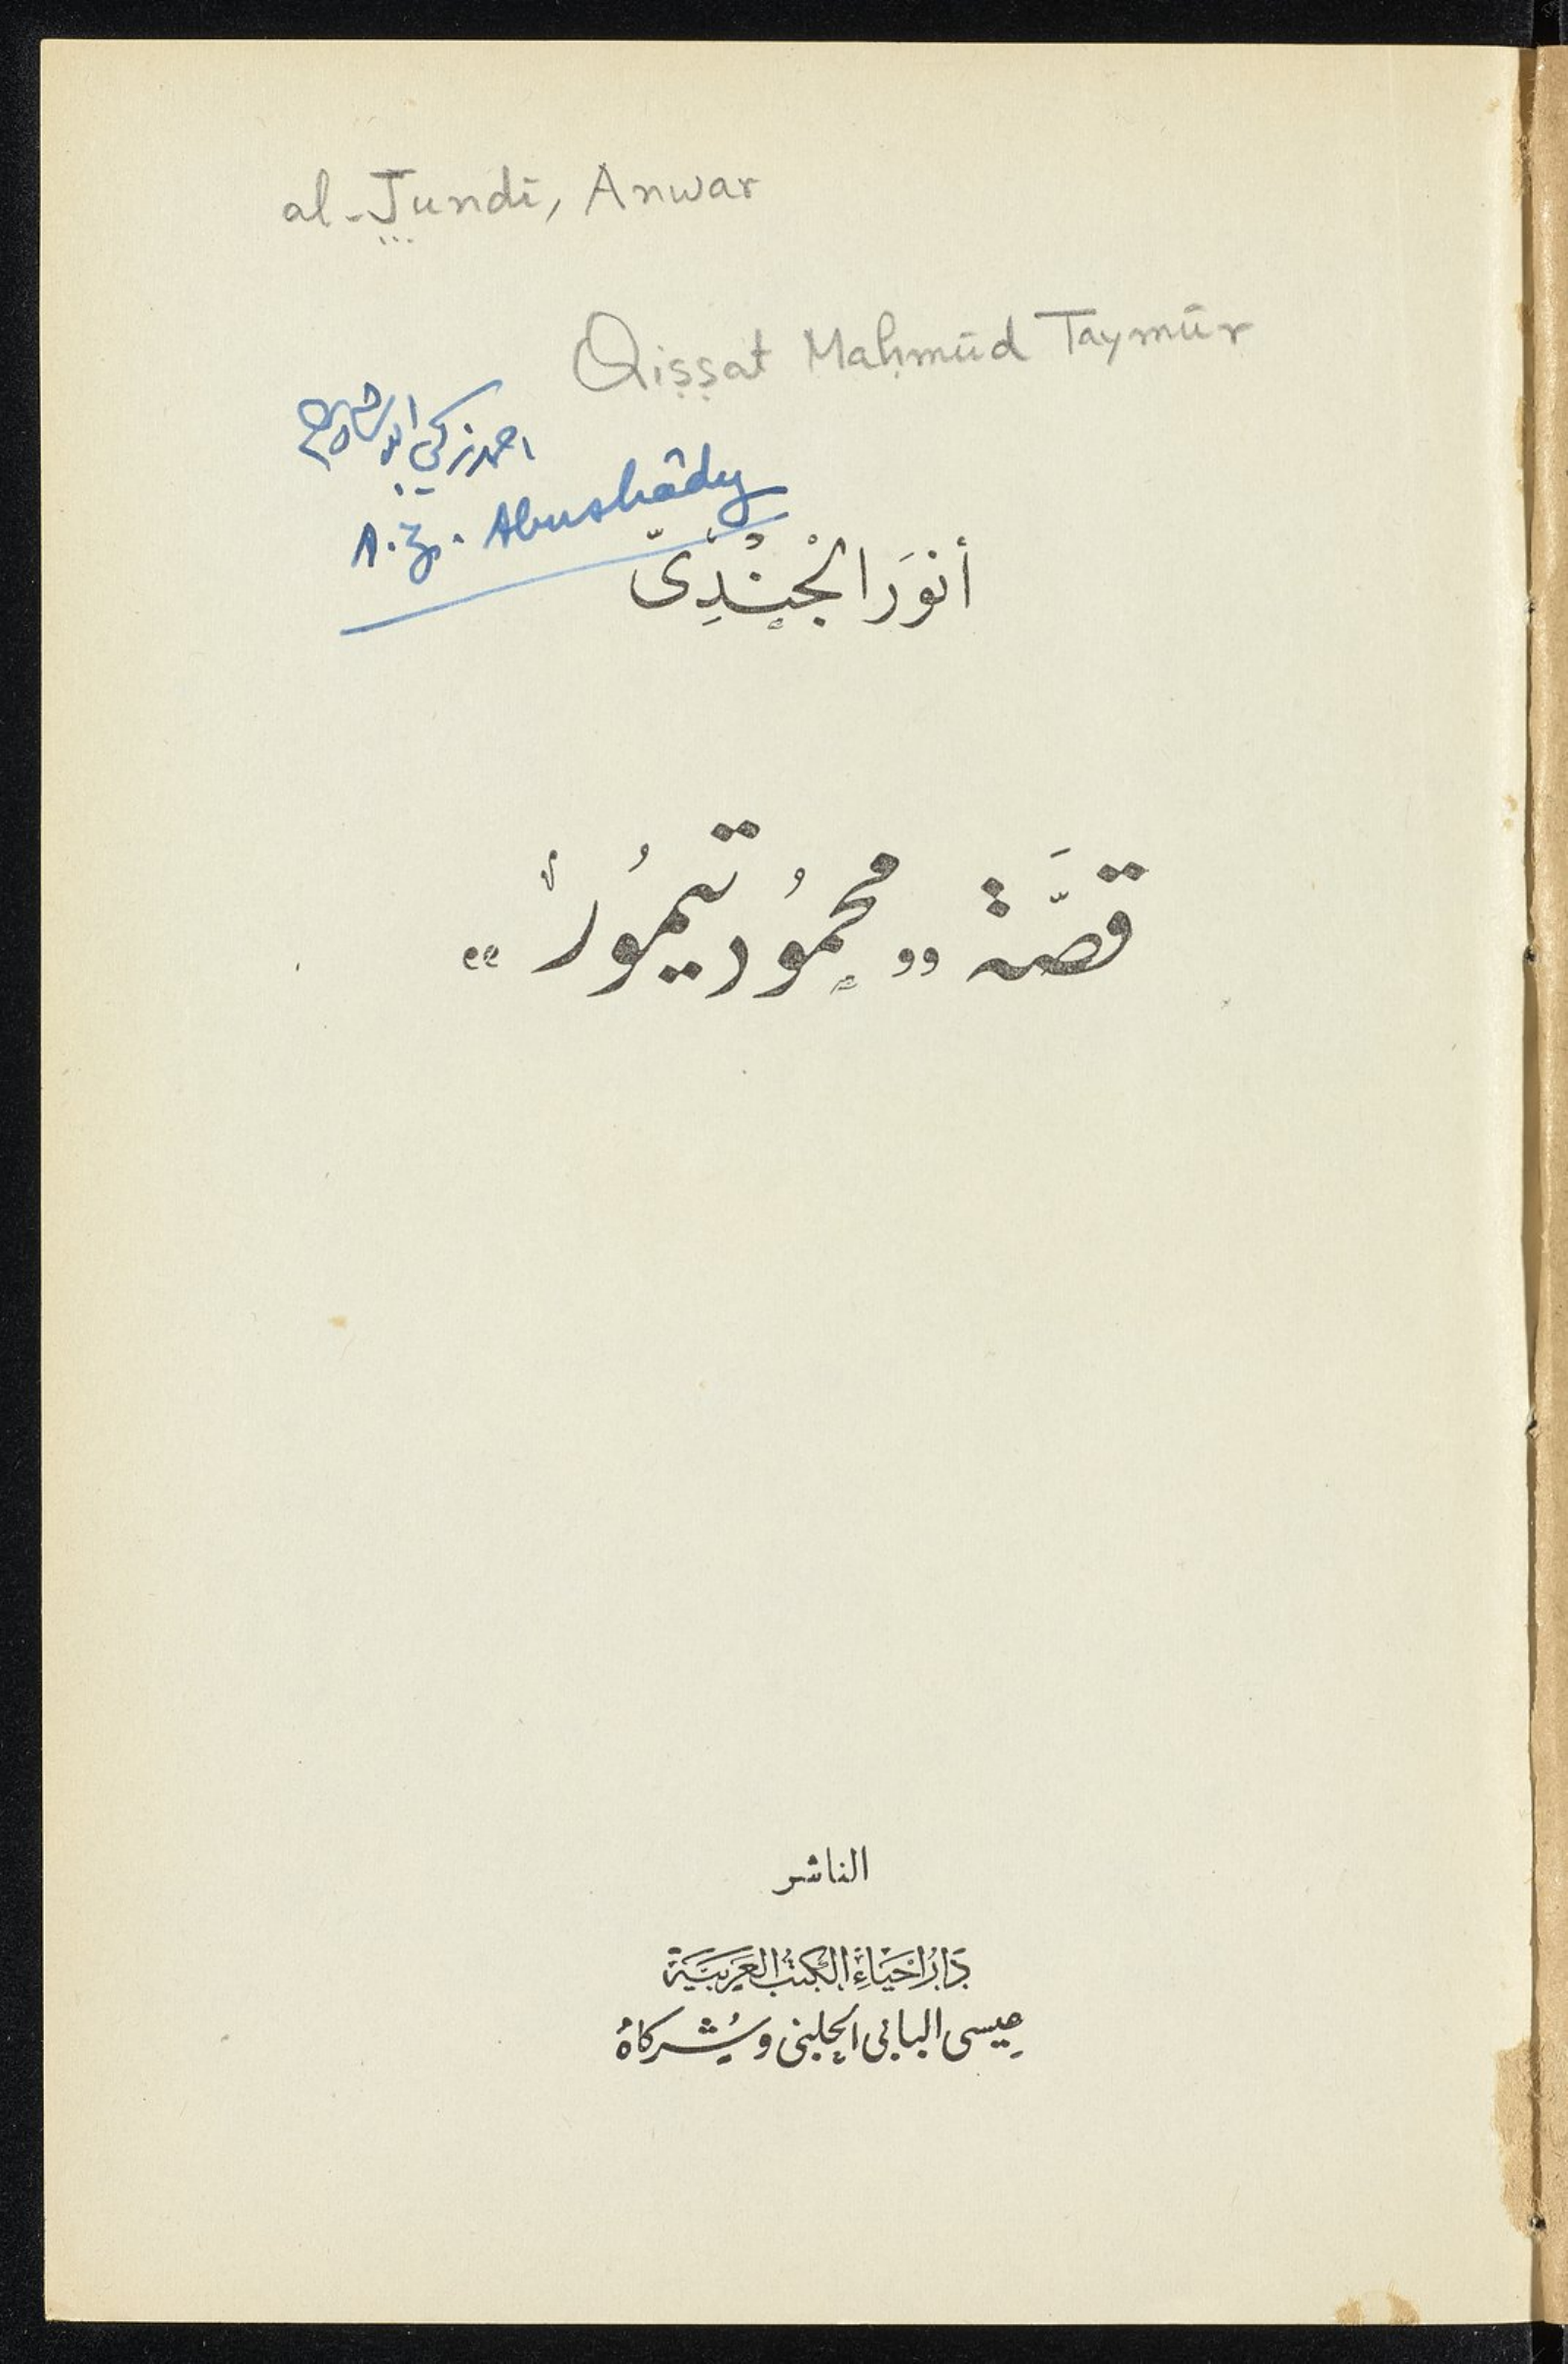 al-Jundī, Anwar
Qiṣṣat Maḥmūd Taymūr
احمد زكي ابو شادي
A. Z. Abushâdy
أنوَر الجُنْدِىّ
قصَّة ,, محمُود تيمُور ,,
الناشر
دَارُ احْيَاءِ الكتُب العَرَبيَّة
عيسى البابى الحلبى وشُركاهُ